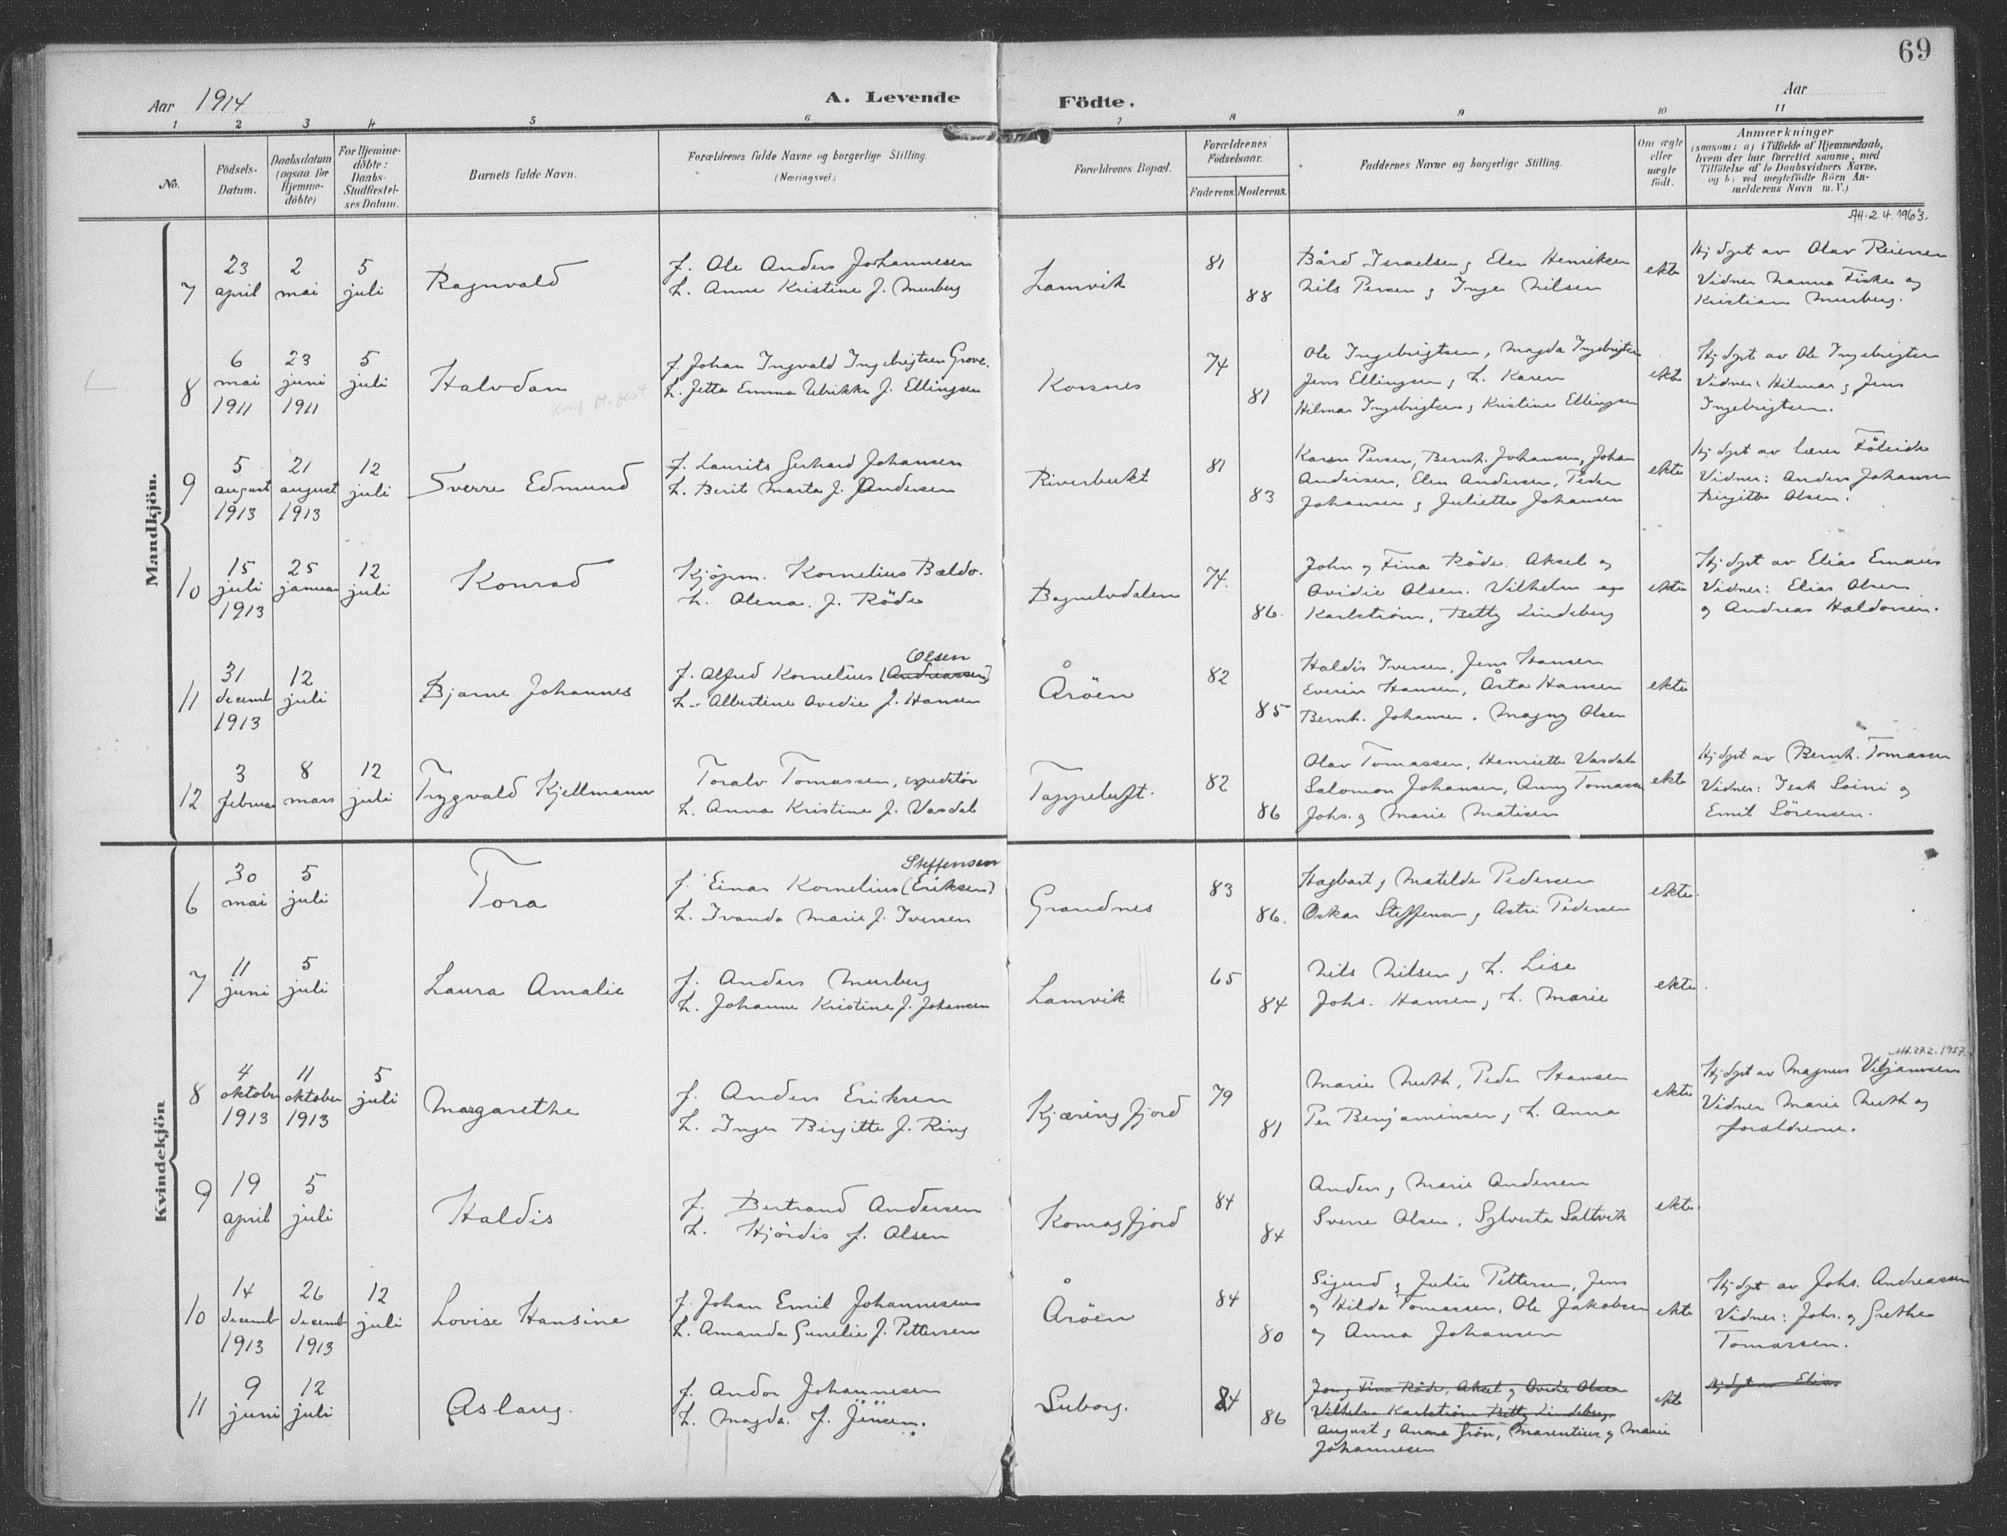 69
Aar 1914
A. Levende
Födte.
Aar
1 2 3 4 5 6 7 8 9 10 11
No.
Födsels-
Datum.
Daabsdatum
(ogsaa for
Hjemme-
döbte)
For Hjemme-
döbte:
Daabs-
Stadfæstel-
ses Datum.
Barnets fulde Navn.
Forældrenes fulde Navne og borgerlige Stilling.
(Næringsvei.)
Forældrenes Bopæl.
Forældrenes
Födselsaar.
Faderens. Moderens.
Faddernes Navne og borgerlige Stilling.
Om ægte
eller
uægte
födt.
Anmærkninger
(saasom: a) i Tilfælde af Hjemmedaab,
hvem der har forrettet samme, med
Tilföielse af to Daabsvidners Navne,
og b) ved uægtefödte Börn An-
melderens Navn m. V.)
Mandkjön.
7
23
april
2
mai
5
juli
Ragnvald
f. Ole Anders Johannesen
h. Anne Kristine f. Murberg
Lamvik
81
88
Bård Israelsen, Elen Henriksen
Nils Persen og Inger Nilsen
ekte
AH. 2.4.1963.
Hj døpt av Olav Reiersen
Vidner Nanna Fiske og
Kristian Murberg.
8
6
mai
1911
23
juni
1911
5
juli
Halvdan
f. Johan Ingvald Ingebrigtsen Grove.
h. Jetta Emma Ulrikke f. Ellingsen
Korsnes
74
81
Ole Ingebrigtsen, Magda Ingebrigtsen
Jens Ellingsen og h. Karen
Hilmar Ingebrigtsen og Kristine Ellingsen
ekte
Hj døpt av Ole Ingebrigtsen
Vidner: Hilmar og Jens
Ingebrigtsen.
9
5
august
1913
21
august
1913
12
juli
Sverre Edmund
f. Laurits Gerhard Johansen
h. Berit Marta f. Andersen
Riverbukt
81
83
Karen Persen, Bernh. Johansen, Johan
Andersen, Elen Andersen, Peder
Johansen og Juliette Johansen
ekte
Hj døpt av lærer Fölside
Vidner: Anders Johansen
Birgitte Olsen.
10
15
juli
1913
25
januar
12
juli
Konrad
Kjöpm. Kornelius Bældo.
h. Olena f. Röde
Bognelvdalen
74.
86.
John og Fina Röde. Aksel og
Ovidie Olsen. Vilhelm og
Karlström, Betty Lindeberg
ekte
Hj døpt av Elias Emaus
Vidner: Elias Olsen
og Andreas Haldorsen.
11
31
decemb
1913
12
juli
Bjarne Johannes
Olsen
f. Alfred Kornelius [Andreassen]
h. Albertine Ovedie f. Hansen
Åröen
82
85
Haldis Iversen, Jens Hansen
Everin Hansen, Åsta Hansen
Bernh. Johansen, Magny Olsen
ekte
12
3
februar
8
mars
12
juli
Trygvald Kjellmann
Toralv Tomassen, expeditör
h. Anna Kristine f. Vasdal
Tappeluft.
82
86
Olav Tomassen, Henriette Vasdal
Salomon Johansen, Anny Tomassen
Johs. og Marie Matisen
ekte
Hj døpt av Bernh. Tomassen
Vidner: Isak Soini og
Emil Sörensen.
Kvindekjön
6
30
mai
5
juli
Tora
Steffensen
f. Einar Kornelius (Eriksen)
h. Ivanda Marie f. Iversen
Grandnes
83
86.
Hagbart og Matilde Pedersen
Oskar Steffensen og Astri Pedersen
ekte.
7
11
juni
5
juli
Laura Amalie
f. Anders Murberg
h. Johanne Kristine f. Johansen
Lamvik
65
84
Nils Nilsen og h. Lise
Johs. Hansen og h. Marie
ekte.
8
4
oktober
1913
11
oktober
1913
5
juli
Margarethe
f. Anders Eriksen
h. Inger Birgitte f. Ring
Kjæringfjord
79
81
Marie Muth, Peder Hansen
Per Benjaminsen og h. Anna
ekte
AH.27.2.1957.
Hj døpt av Magnus Viljamsen
Vidner Marie Muth og
forældrene.
9
19
april
5
juli
Haldis
f. Bertrand Andersen
h. Hjördis f. Olsen
Komagfjord
84
84
Anders og Marie Andersen
Sverre Olsen, Sylvesta Saltvik
ekte.
10
14
decemb
1913
26
decemb
1913
12
juli
Lovise Hansine
f. Johan Emil Johannesen
h. Amanda Gunelie f. Pettersen
Åröen
84
80
Sigurd og Julie Pettersen, Jens
og Hilda Tomassen, Ole Jakobsen
og Anna Johansen
ekte
Hj døpt av Johs. Andreassen
Vidner: Johs. og Grethe
Tomassen.
11
9
juni
12
juli
Aslaug.
f. Andor Johannesen
h. Magda f. Jensen.
Suborg.
84
86
John og Fina Röde, Aksel og Ovidie Olsen
Vilhelm Karlström Betty Lindeberg.
August og Anna Grön, Marentius og Marie
Johannesen
ekte
Hj døpt av Elias